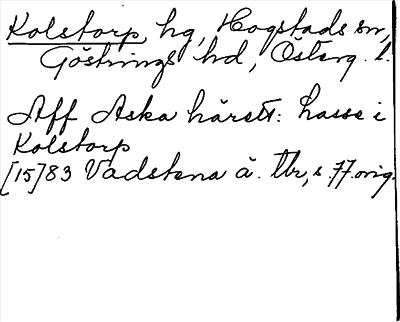 Kolstorp, hg, Hogstads sn,
Göstrings hd, Österg. l.
Aff Aska härett: Lasse i
Kolstorp
[15]83 Vadstena ä. tbr, s. 77. orig.